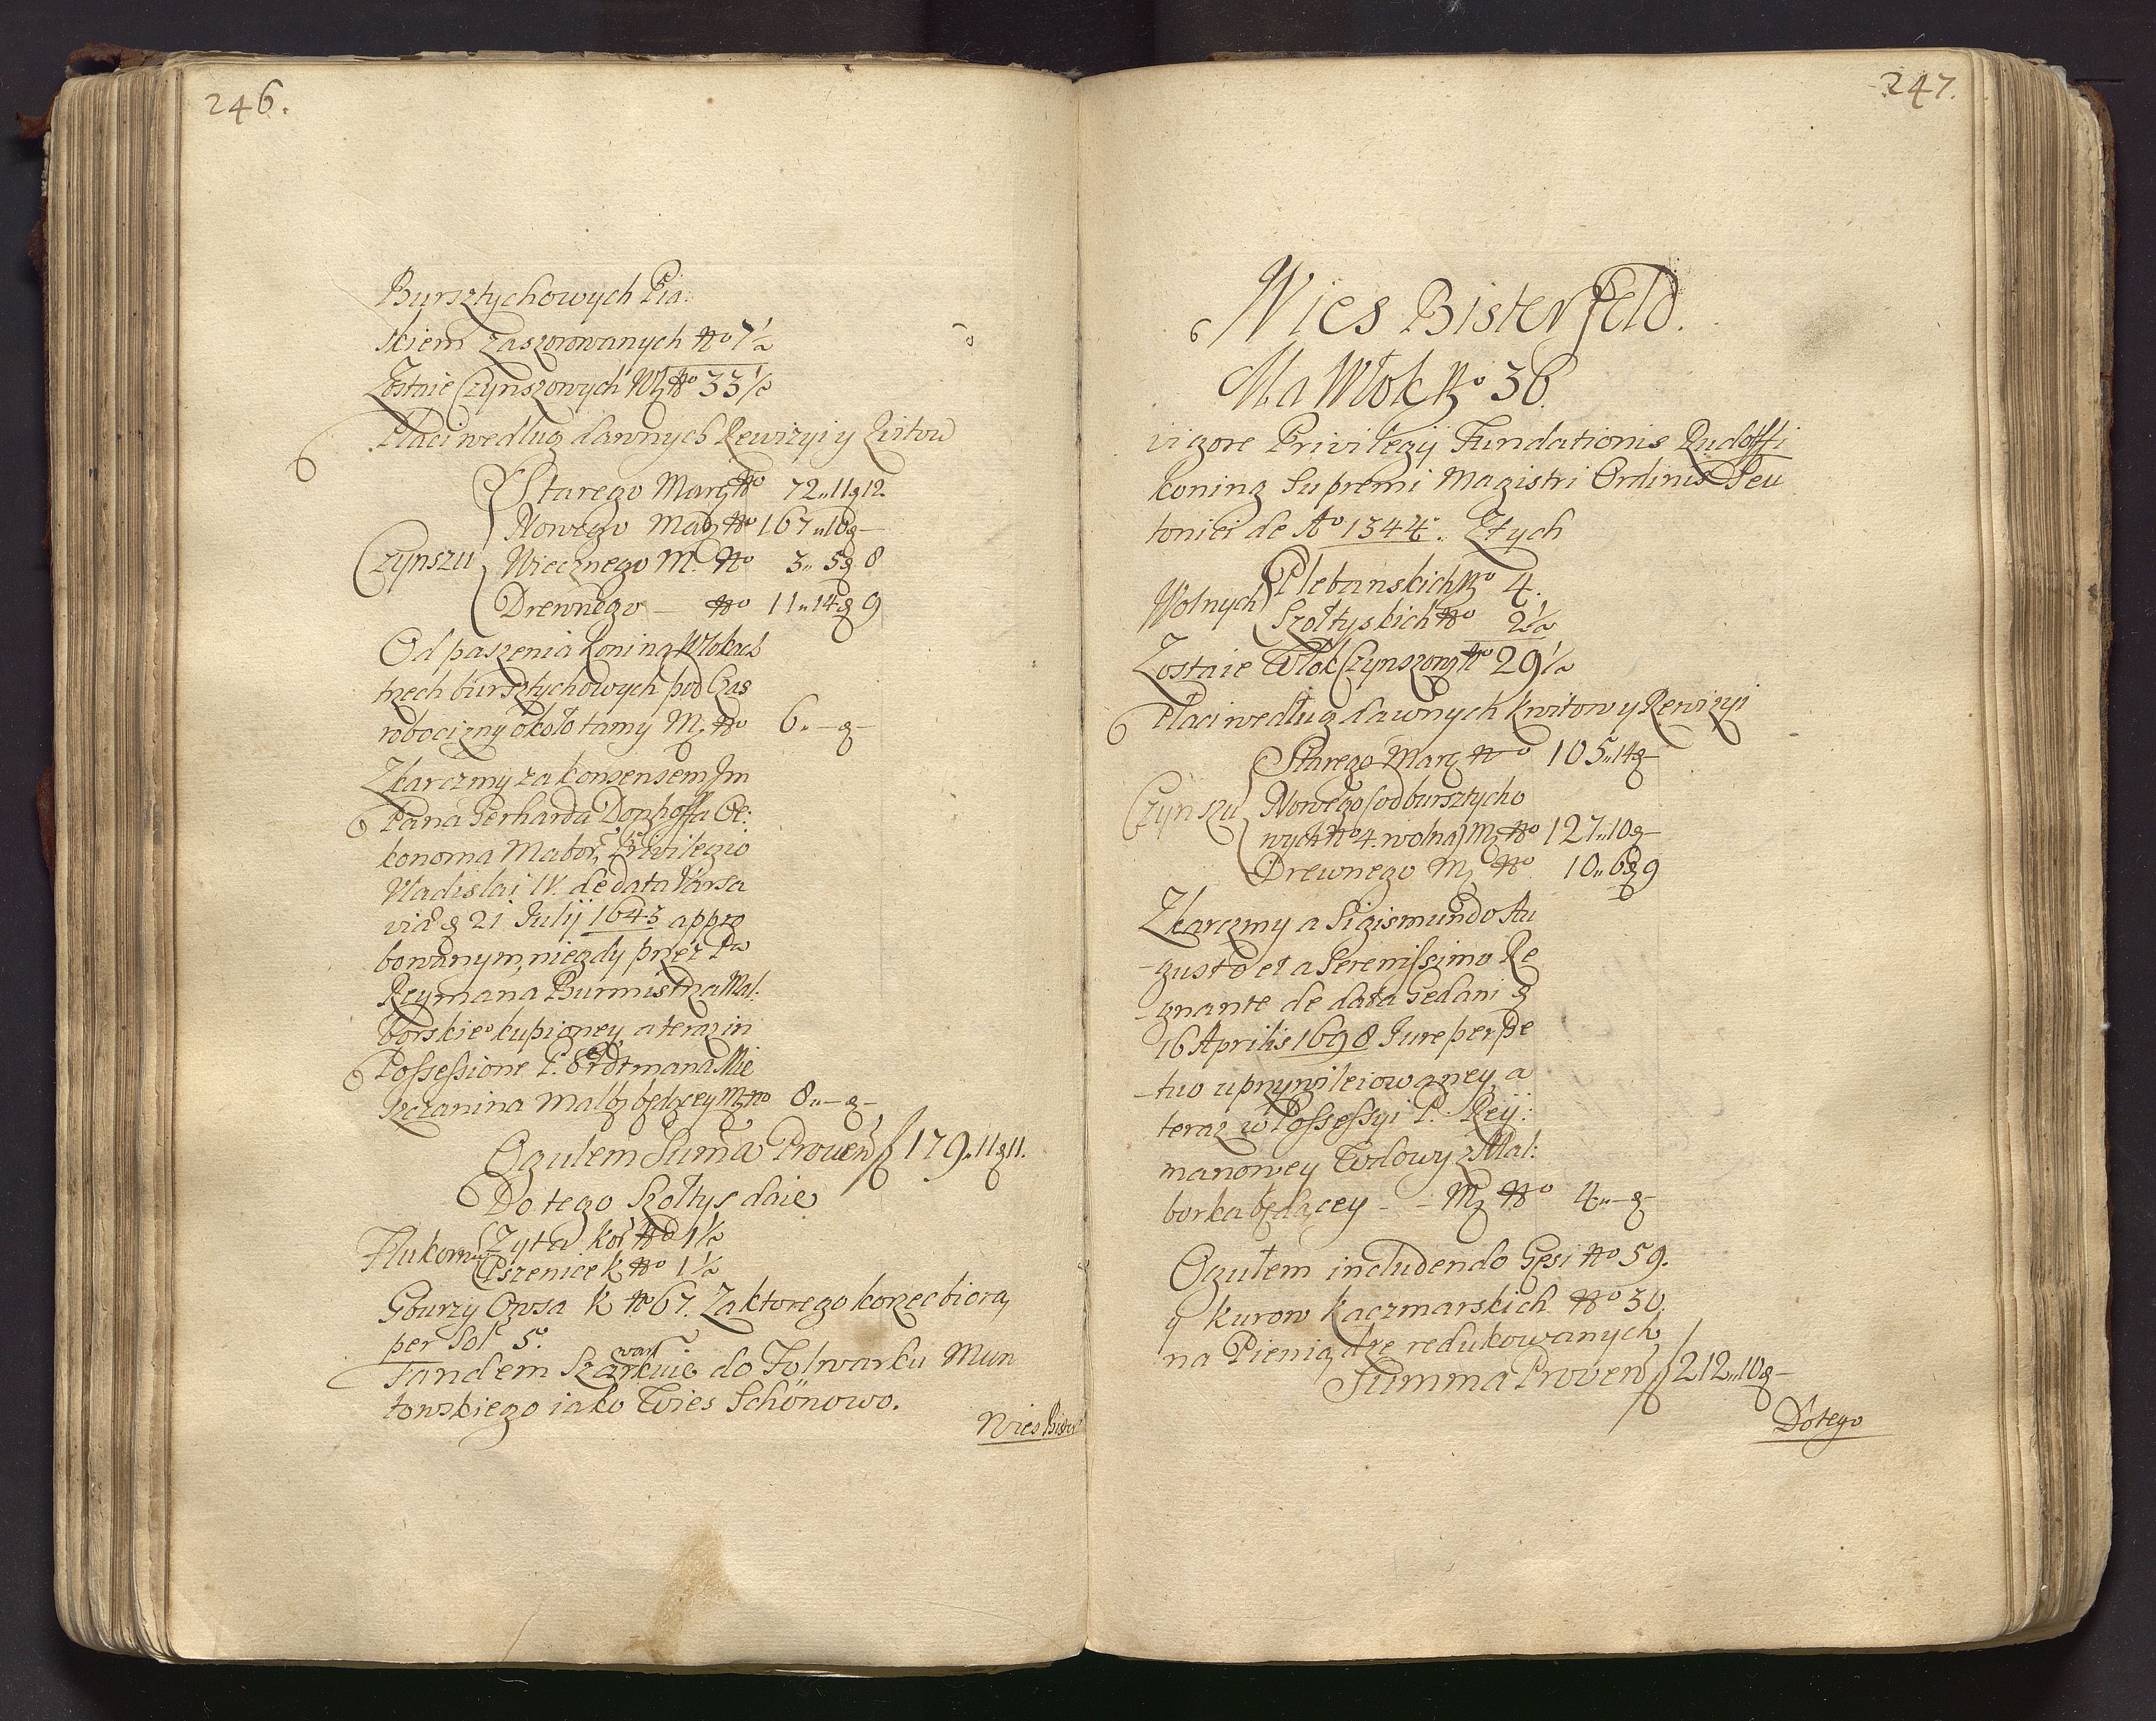 246.
Bursztychowych Pia:
skiem zaszorowanych No 7½
Zostaie Czynszowych Wł. No 33½
Płaci według dawnych Rewizyi y Kwitow
Starego Marz No 72„11g12.
Nowego Marz No 167„10g—
Czynszu Wiecznego M. No 3„5g8
Drewnego — No 11„14g9
Od paszenia Koni na Włokach
trzech bursztychowych pod czas
robocizny około tamy M. No 6„—g—
Z karczmy za konsensem Jm
Pana Gerharda Donhoffa Oe:
konoma Malbor, Privilegio
Vladislai IV. de data Varsa
viae d 21 Julij 1643 appro
bowanym, niegdy przez Pa
Reymana Burmistrza Mal:
borskieo kupioney, a teraz in
Possessione P. Erdtmana Mie
szczanina Malb. będącey M. No 8„—g—
Ogułem Suma Proven f 179„11g11.
Do tego Szołtys daie
Hukornu Zyta kor No 1½
Pszenice k No 1½
Gburzy Owsa K No 67. Za ktorego korzec biorą
per Sol 5.
Tandem Szarwarkuie do Folwarku Mun
towskiego iako Wies Schönowo.
Wies Bister
247.
Wies Bisterfeld.
Ma Włok No 36.
vigore Privilegij Fundationis Ludolffi
Koning Supremi Magistri Ordinis Teu
tonici de Ao 1344. Z tych
Wolnych Plebanskich No 4.
Szołtyskich No 2½
Zostaie Włok Czynszowy No 29½
Płaci według dawnych kwitow y Rewizyi
Starego Marz No 105„14g—
Czynszu Nowego (od bursztycho
wych No 4. wolna) M. No 127„10g—
Drewnego M. No 10„6g9
Z karczmy a Sigismundo Au
gusto et a Serenissimo Re
gnante de data Gedani d
16 Aprilis 1698 Jure perpe
tuo uprzywileiowaney, a
teraz w Possessyi P. Reij:
manowey Wdowy z Mal:
borka będącey - - M. No 4„—g—
Ogułem includendo Gęsi No 59.
y kurow kaczmarskich No 30.
na Pieniądze redukowanych
Summa Proven f 212„10g—
Do tego